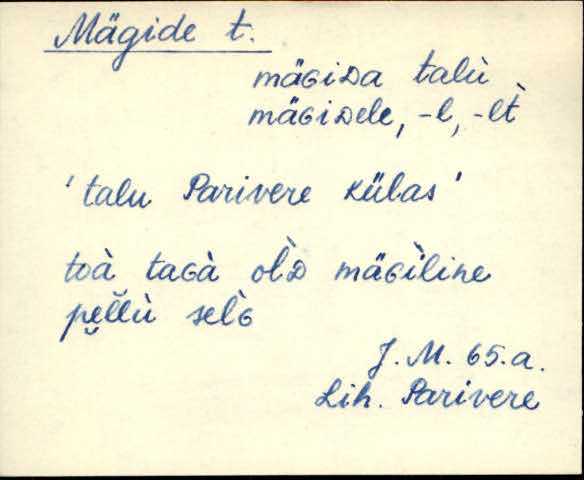 Mägide t.
mäɢiᴅa talù
mäɢiᴅele, -l, -lt̀
'talu Parivere külas'
toà taɢà ol̀ᴅ mäɢìline
pe̮l̆l̆ù sel̀ɢ
J. M. 65.a.
Lih. Parivere